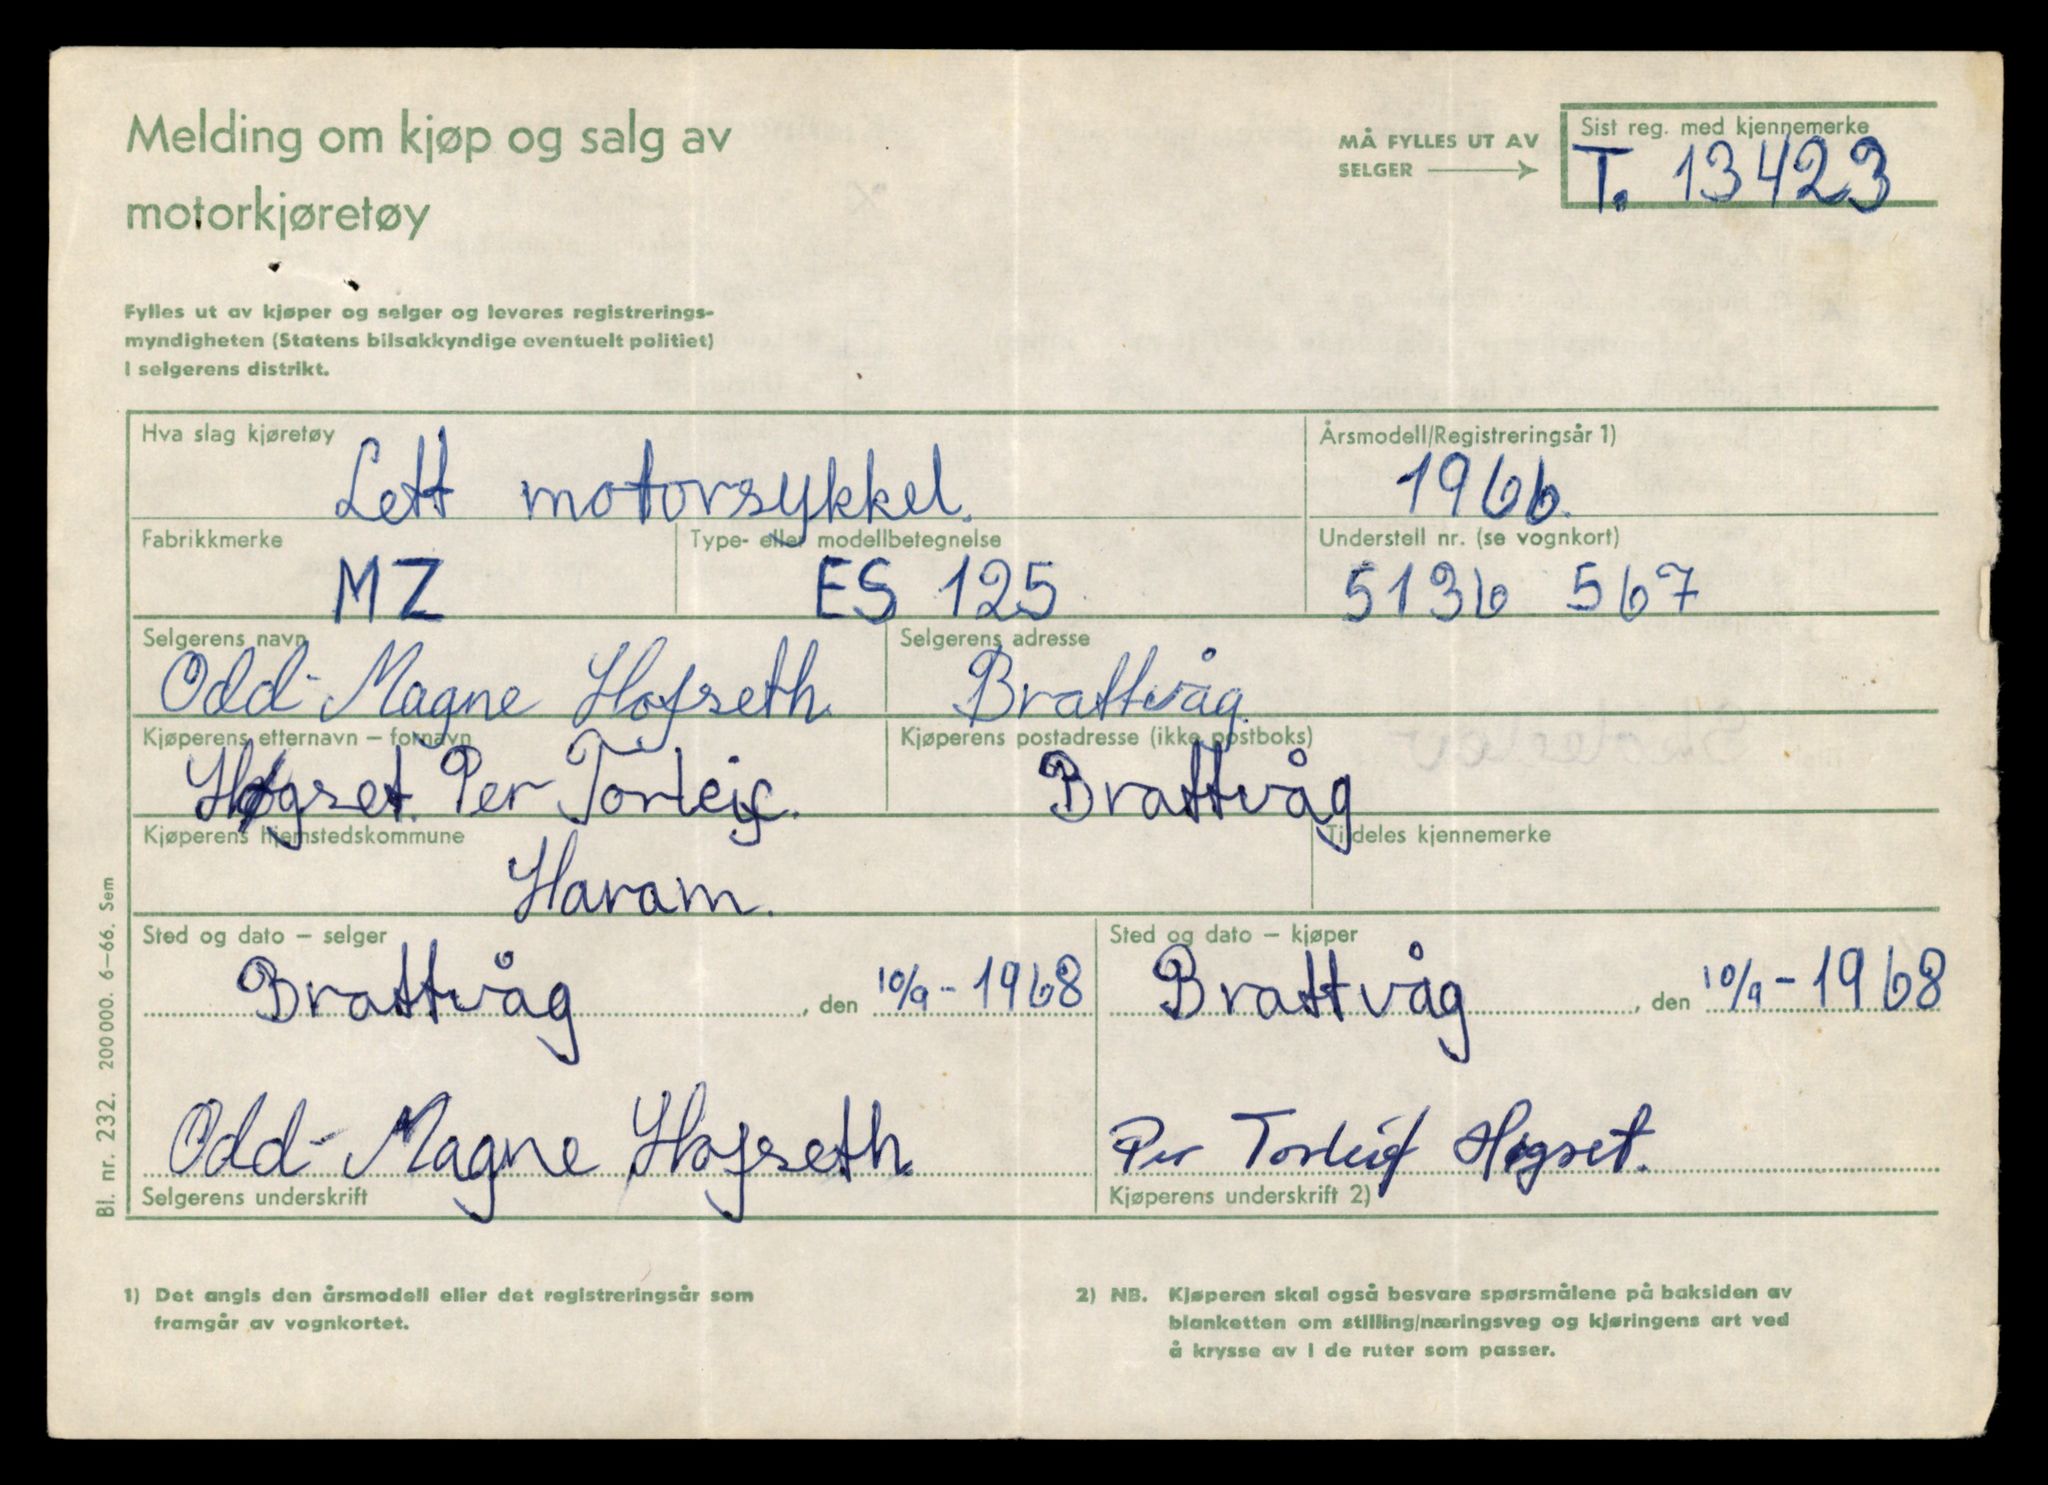 Melding om kjøp og salg av
motorkjøretøy
MÅ FYLLES UT AV
SELGER
Sist reg. med kjennemerke
T. 13423
Fylles ut av kjøper og selger og leveres registrerings-
myndigheten (Statens bilsakkyndige eventuelt politiet)
i selgerens distrikt.
Hva slag kjøretøy
Lett motorsykkel.
Årsmodell/Registreringsår 1)
1966.
Fabrikkmerke
MZ
Type- eller modellbetegnelse
ES 125
Understell nr. (se vognkort)
5136 567
Selgerens navn
Odd-Magne Hofseth.
Selgerens adresse
Brattvåg.
Kjøperens etternavn – fornavn
Høgset. Per Torleif.
Kjøperens postadresse (ikke postboks)
Brattvåg
Kjøperens hjemstedskommune
Haram.
Tildeles kjennemerke
Sted og dato – selger
Brattvåg, den 10/9-1968
Sted og dato – kjøper
Brattvåg, den 10/9-1968
Odd-Magne Hofseth.
Selgerens underskrift
Per Torleif Høgset.
Kjøperens underskrift 2)
Bl. nr. 232. 200 000. 6–66. Sem
1) Det angis den årsmodell eller det registreringsår som
framgår av vognkortet.
2) NB. Kjøperen skal også besvare spørsmålene på baksiden av
blanketten om stilling/næringsveg og kjøringens art ved
å krysse av i de ruter som passer.